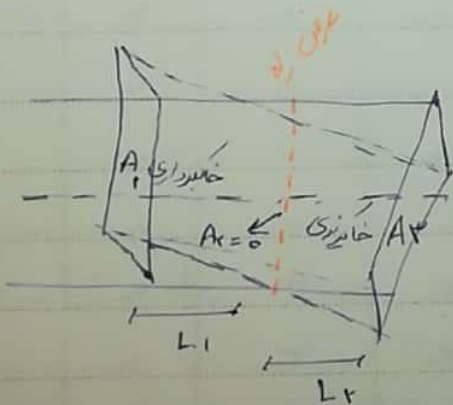 عرض راه
A₁ خاکبرداری
A₂ = 0
خاکریزی A۳
L₁
L₂